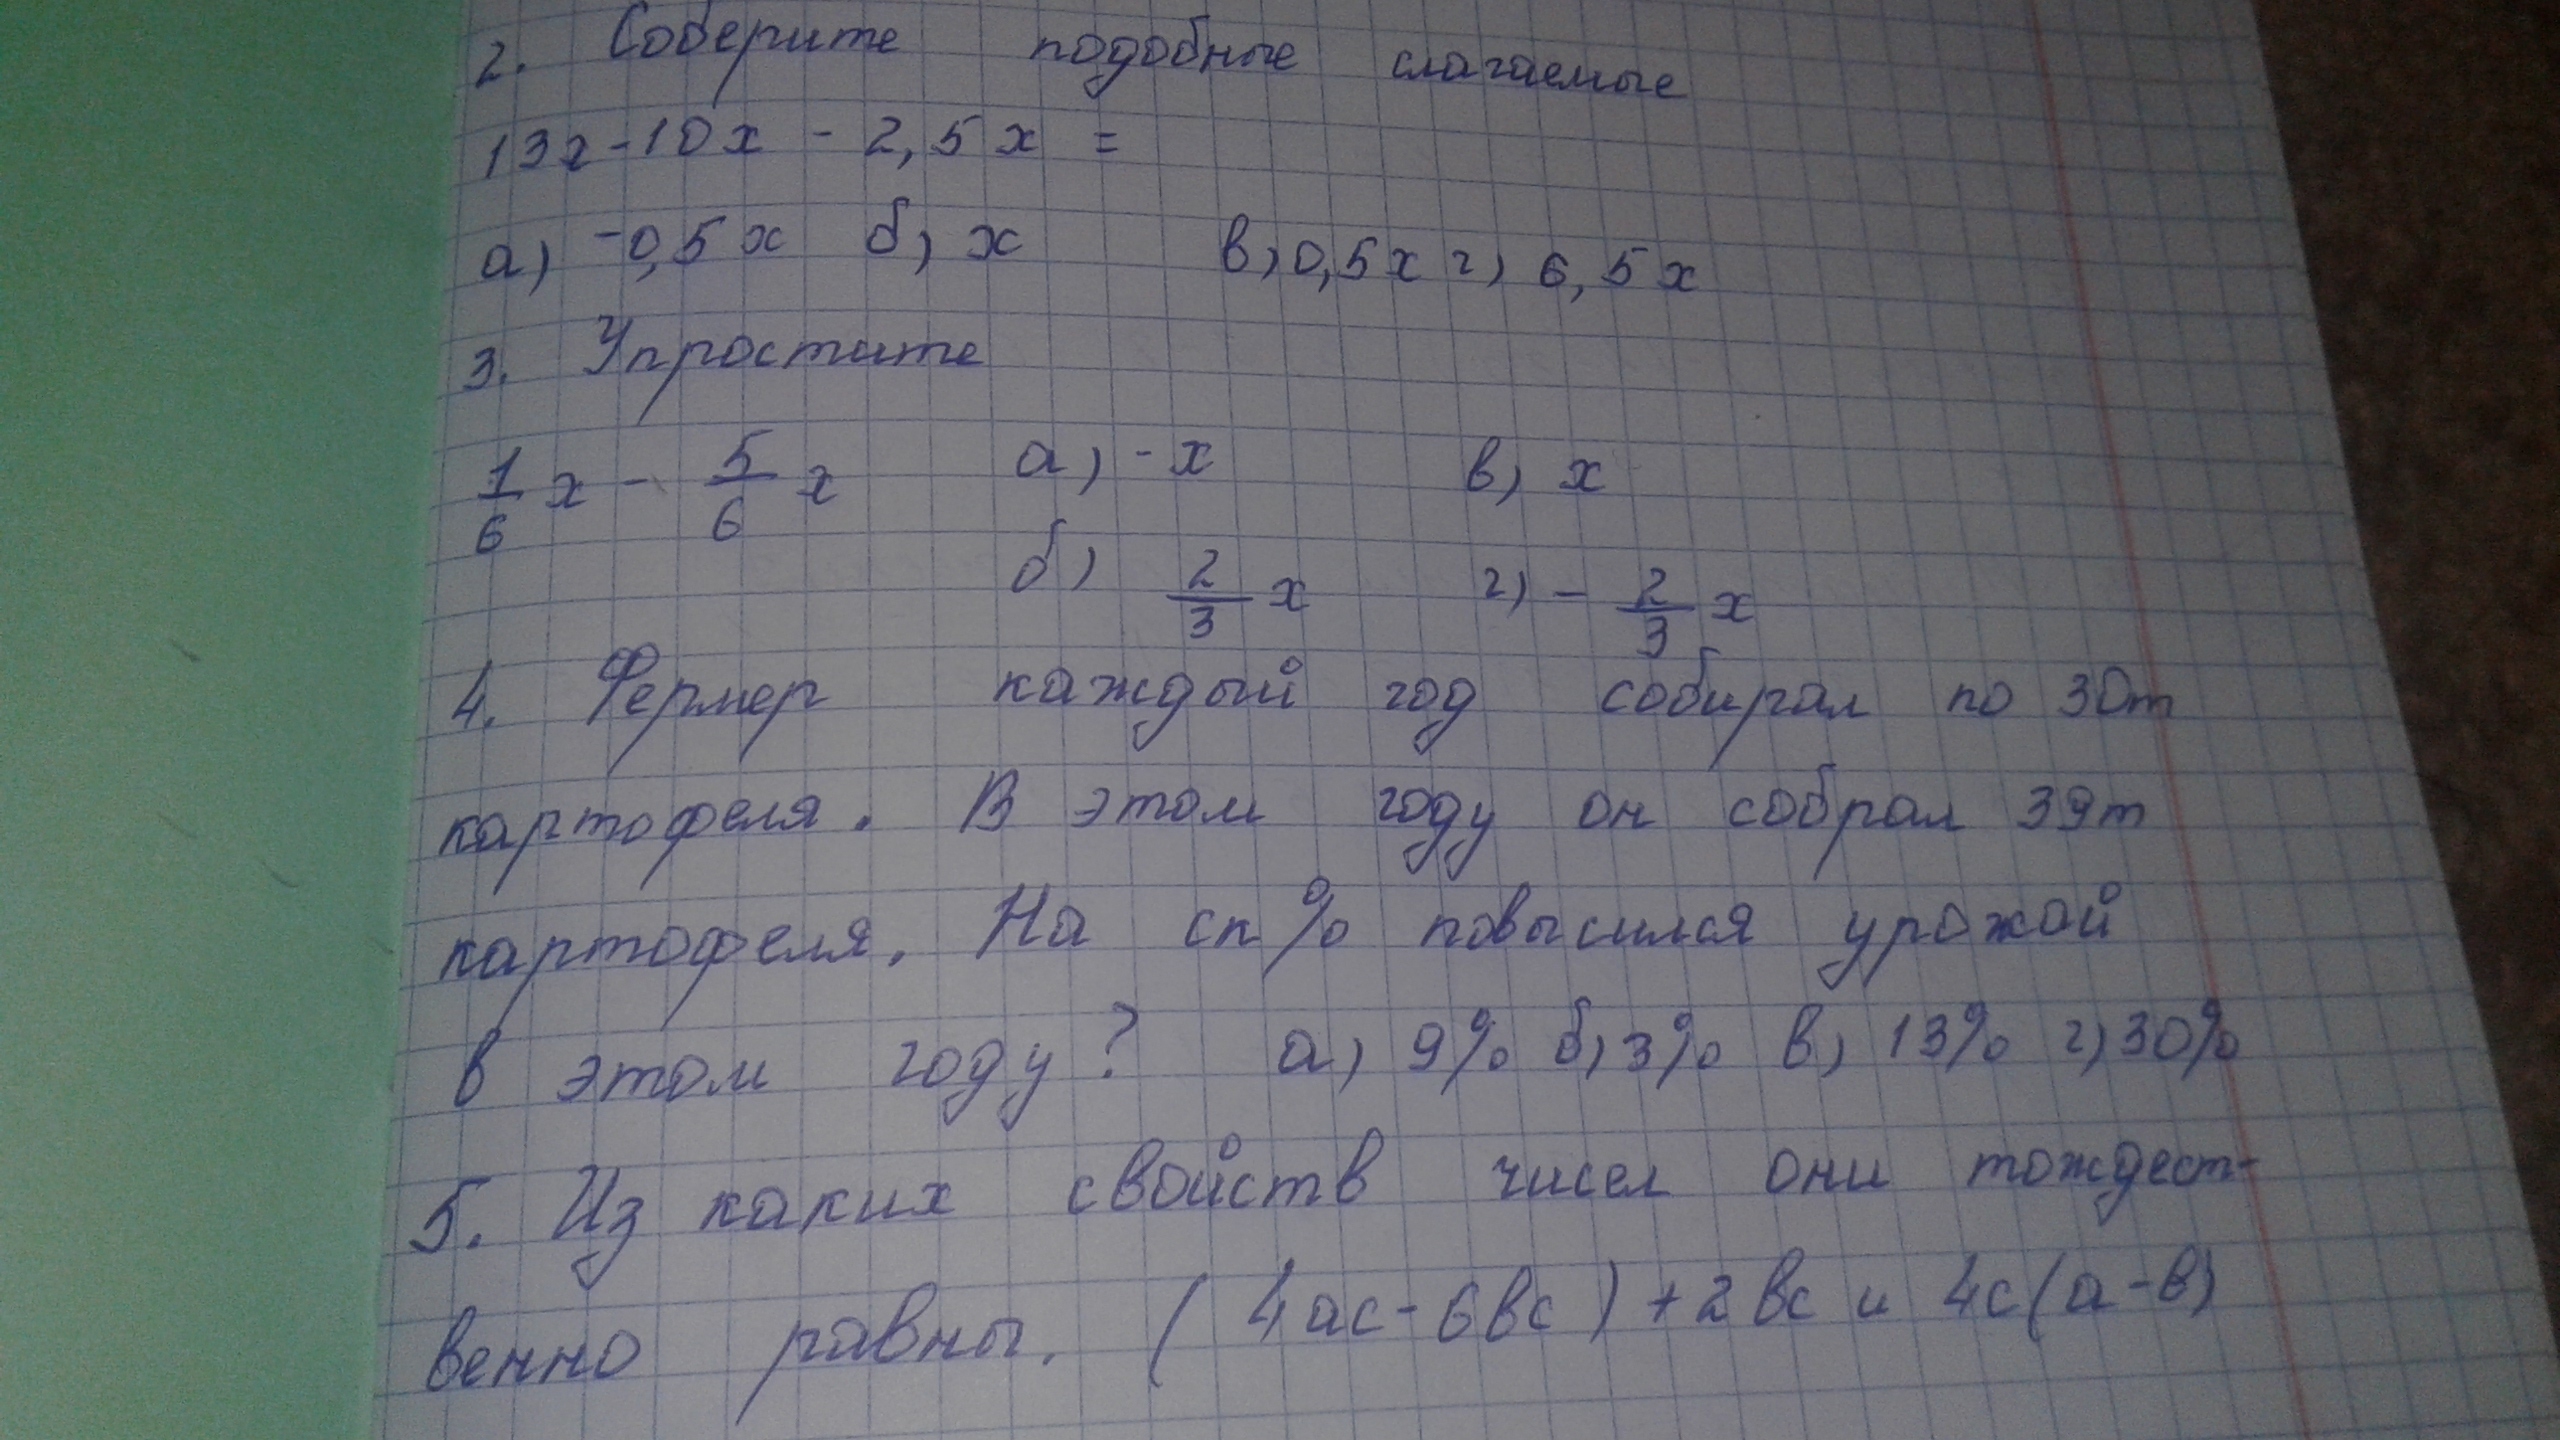 2. Соберите подобные слагаемые
13x - 10x - 2,5x =
а) -0,5x б) x в) 0,5x г) 6,5x
3. Упростите
1/6 x - 5/6 x а) -x в) x
б) 2/3 x г) - 2/3 x
4. Фермер каждый год собирал по 30т
картофеля. В этом году он собрал 39т
картофеля. На ск % повысился урожай
в этом году? а) 9% б) 3% в) 13% г) 30%
5. Из каких свойств чисел они тождест-
венно равны. (4ac - 6вc) + 2вc и 4c(a-в)